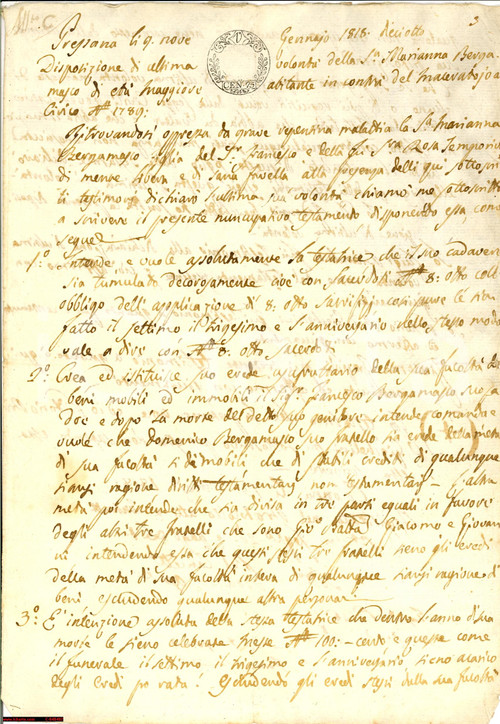 3
Pressana li 9. nove Gennajo 1818. dieciotto
Disposizione di ultima volontà della Sra. Marianna Berga-
masco di età maggiore abitante in contrà del
Civico N 1789:
CEN.
Ritrovandosi oppressa da grave repentina malattia la Sra. Marianna
Bergamasco figlia del Sr. Francesco e della fu Sra. Rosa
di mente libera e di sana favella alla presenza delli qui sottoscrit-
ti testimonj dichiarò l'ultima sua volontà chiamò me sottoscritto
a scrivere il presente nuncupativo testamento disponendo essa come
segue
1º. intende e vuole assolutamente la testatrice che il suo cadavere
sia tumulato decorosamente cioè con Sacerdoti N 8: otto coll'
obbligo dell'applicazione di 8: otto così pure le sia
fatto il settimo il trigesimo e l'anniversario nello stesso modo
vale a dire con N 8: otto Sacerdoti
2º. Crea ed istituisce suo erede usufruttuario della sua facoltà di
beni mobili ed immobili il Sigr. Francesco Bergamasco suo pa-
dre e dopo la morte del detto suo genitore intende comanda e
vuole che Domenico Bergamasco suo fratello sia erede della metà
di sua facoltà sì de mobili che di stabili crediti di qualunque
siansi ragione diritti testamentarj non testamentarj - L'altra
metà poi intende che sia divisa in tre parti eguali in favore
degli altri tre fratelli che sono Giacomo e Giovan-
ni intendendo essa che questi stessi tre fratelli sieno gli eredi
della metà di sua facoltà intera di qualunque siansi ragione di
beni escludendo qualunque altra persona
3º. È intenzione assoluta della stessa testatrice che dentro l'anno di sua
morte le sieno celebrate messe N 100: - cento e queste come
il funerale il settimo il trigesimo e l'anniversario sieno a carico
degli Eredi pro rata: Escludendo gli eredi stessi dalla sua facoltà